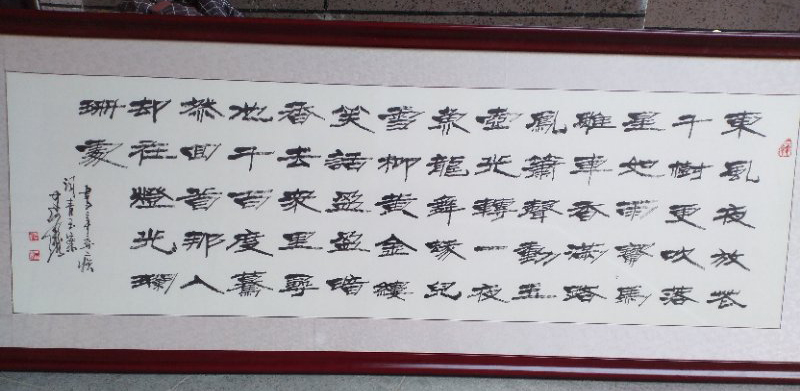 東風夜放花
千樹更吹落
星如雨寶馬
雕車香滿路
鳳簫聲動玉
壺光轉一夜
魚龍舞蛾兒
雪柳黃金縷
笑話盈盈暗
香去衆里尋
他千百度驀
然回首那人
却在燈光斕
珊處
書辛棄疾
詞青玉案